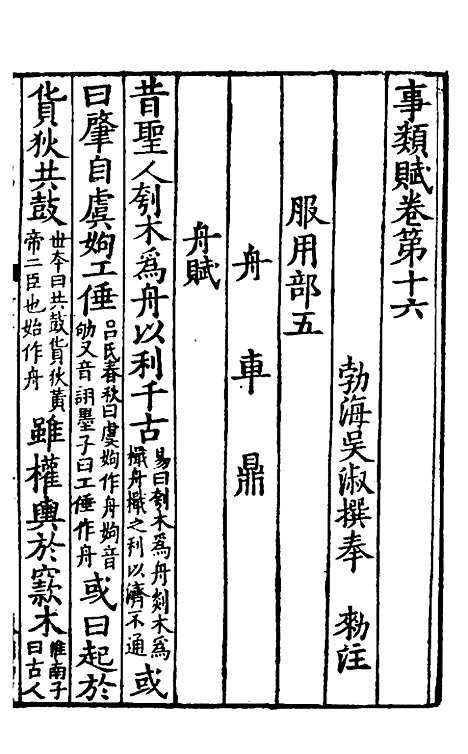 事類賦卷第十六
勃海吳淑撰奉 勑注
服用部五
舟 車 鼎
舟賦
昔聖人刳木爲舟以利千古易曰刳木爲舟剡木爲檝舟檝之利以濟不通或
曰肇自虞姁工倕吕氏春秋曰虞姁作舟姁音劬又音詡墨子曰工倕作舟或曰起於
貨狄共鼓世本曰共鼓貨狄黃帝二臣也始作舟雖權輿於窾木淮南子曰古人